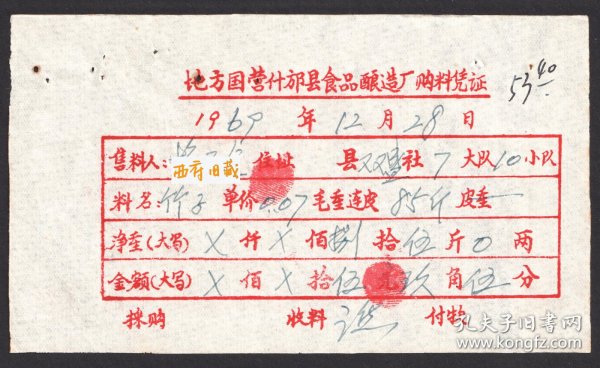 地方国营什邡县食品酿造厂购料凭证
53.40
1969年12月28日
售料人： 住址 县双盛社7大队10小队
西府旧藏
料名：竹子 单价0.07 毛重连皮85斤 皮重—
净重(大写) X 仟 X 佰捌拾伍斤0两
金额(大写) X 佰 X 拾伍元玖角伍分
採购 收料 付款
孔夫子旧书网
www.kongfz.com